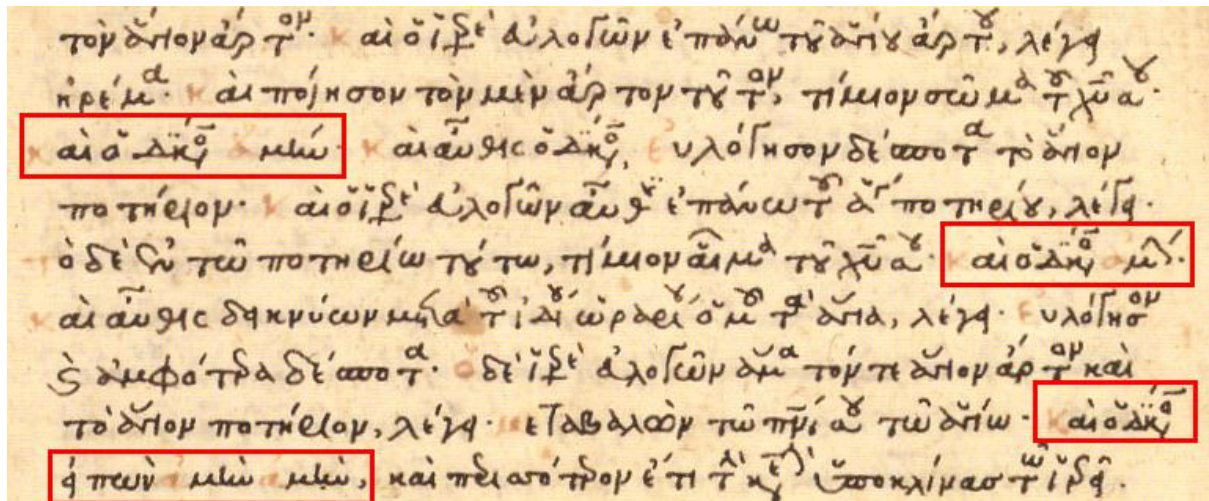 τὸν ἅγιον ἄρτον· καὶ ὁ ἱερεὺ εὐλογῶν ἐπάνω τοῦ ἁγίου ἄρτου, λέγει
ἠρέμα· καὶ ποίησον τὸν μὲν ἄρτον τοῦτον, τίμιον σῶμα τοῦ χῦ σου·
καὶ ὁ διάκο ἀμήν· καὶ αὖθις ὁ διάκο, εὐλόγησον δέσποτα τὸ ἅγιον
ποτήριον· καὶ ὁ ἱερεὺ εὐλογῶν αὖθις ἐπάνω τοῦ ἁγ ποτηρίου, λέγει·
ὸ δὲ ἐν τῷ ποτηρίῳ τούτῳ, τίμιον αἷμα τοῦ χῦ σου· καὶ ὁ διάκο ἀμήν·
καὶ αὖθις δεικνύων μετὰ τοῦ ἰδίου ὡραρίου ὁμοῦ τὰ ἅγια, λέγει· εὐλόγησον
ἀμφότερα δέσποτα· ὁ δὲ ἱερεὺ εὐλογῶν ἅμα τόν τε ἅγιον ἄρτον καὶ
τὸ ἅγιον ποτήριον, λέγει· μεταβαλὼν τῷ πνί σου τῷ ἁγίῳ· καὶ ὁ διάκο
εἰπὼν ἀμὴν ἀμὴν, καὶ περισσότερον ἔτι τὴν κεφαλὴν ὑποκλίνας τῷ ἱερεῖ.